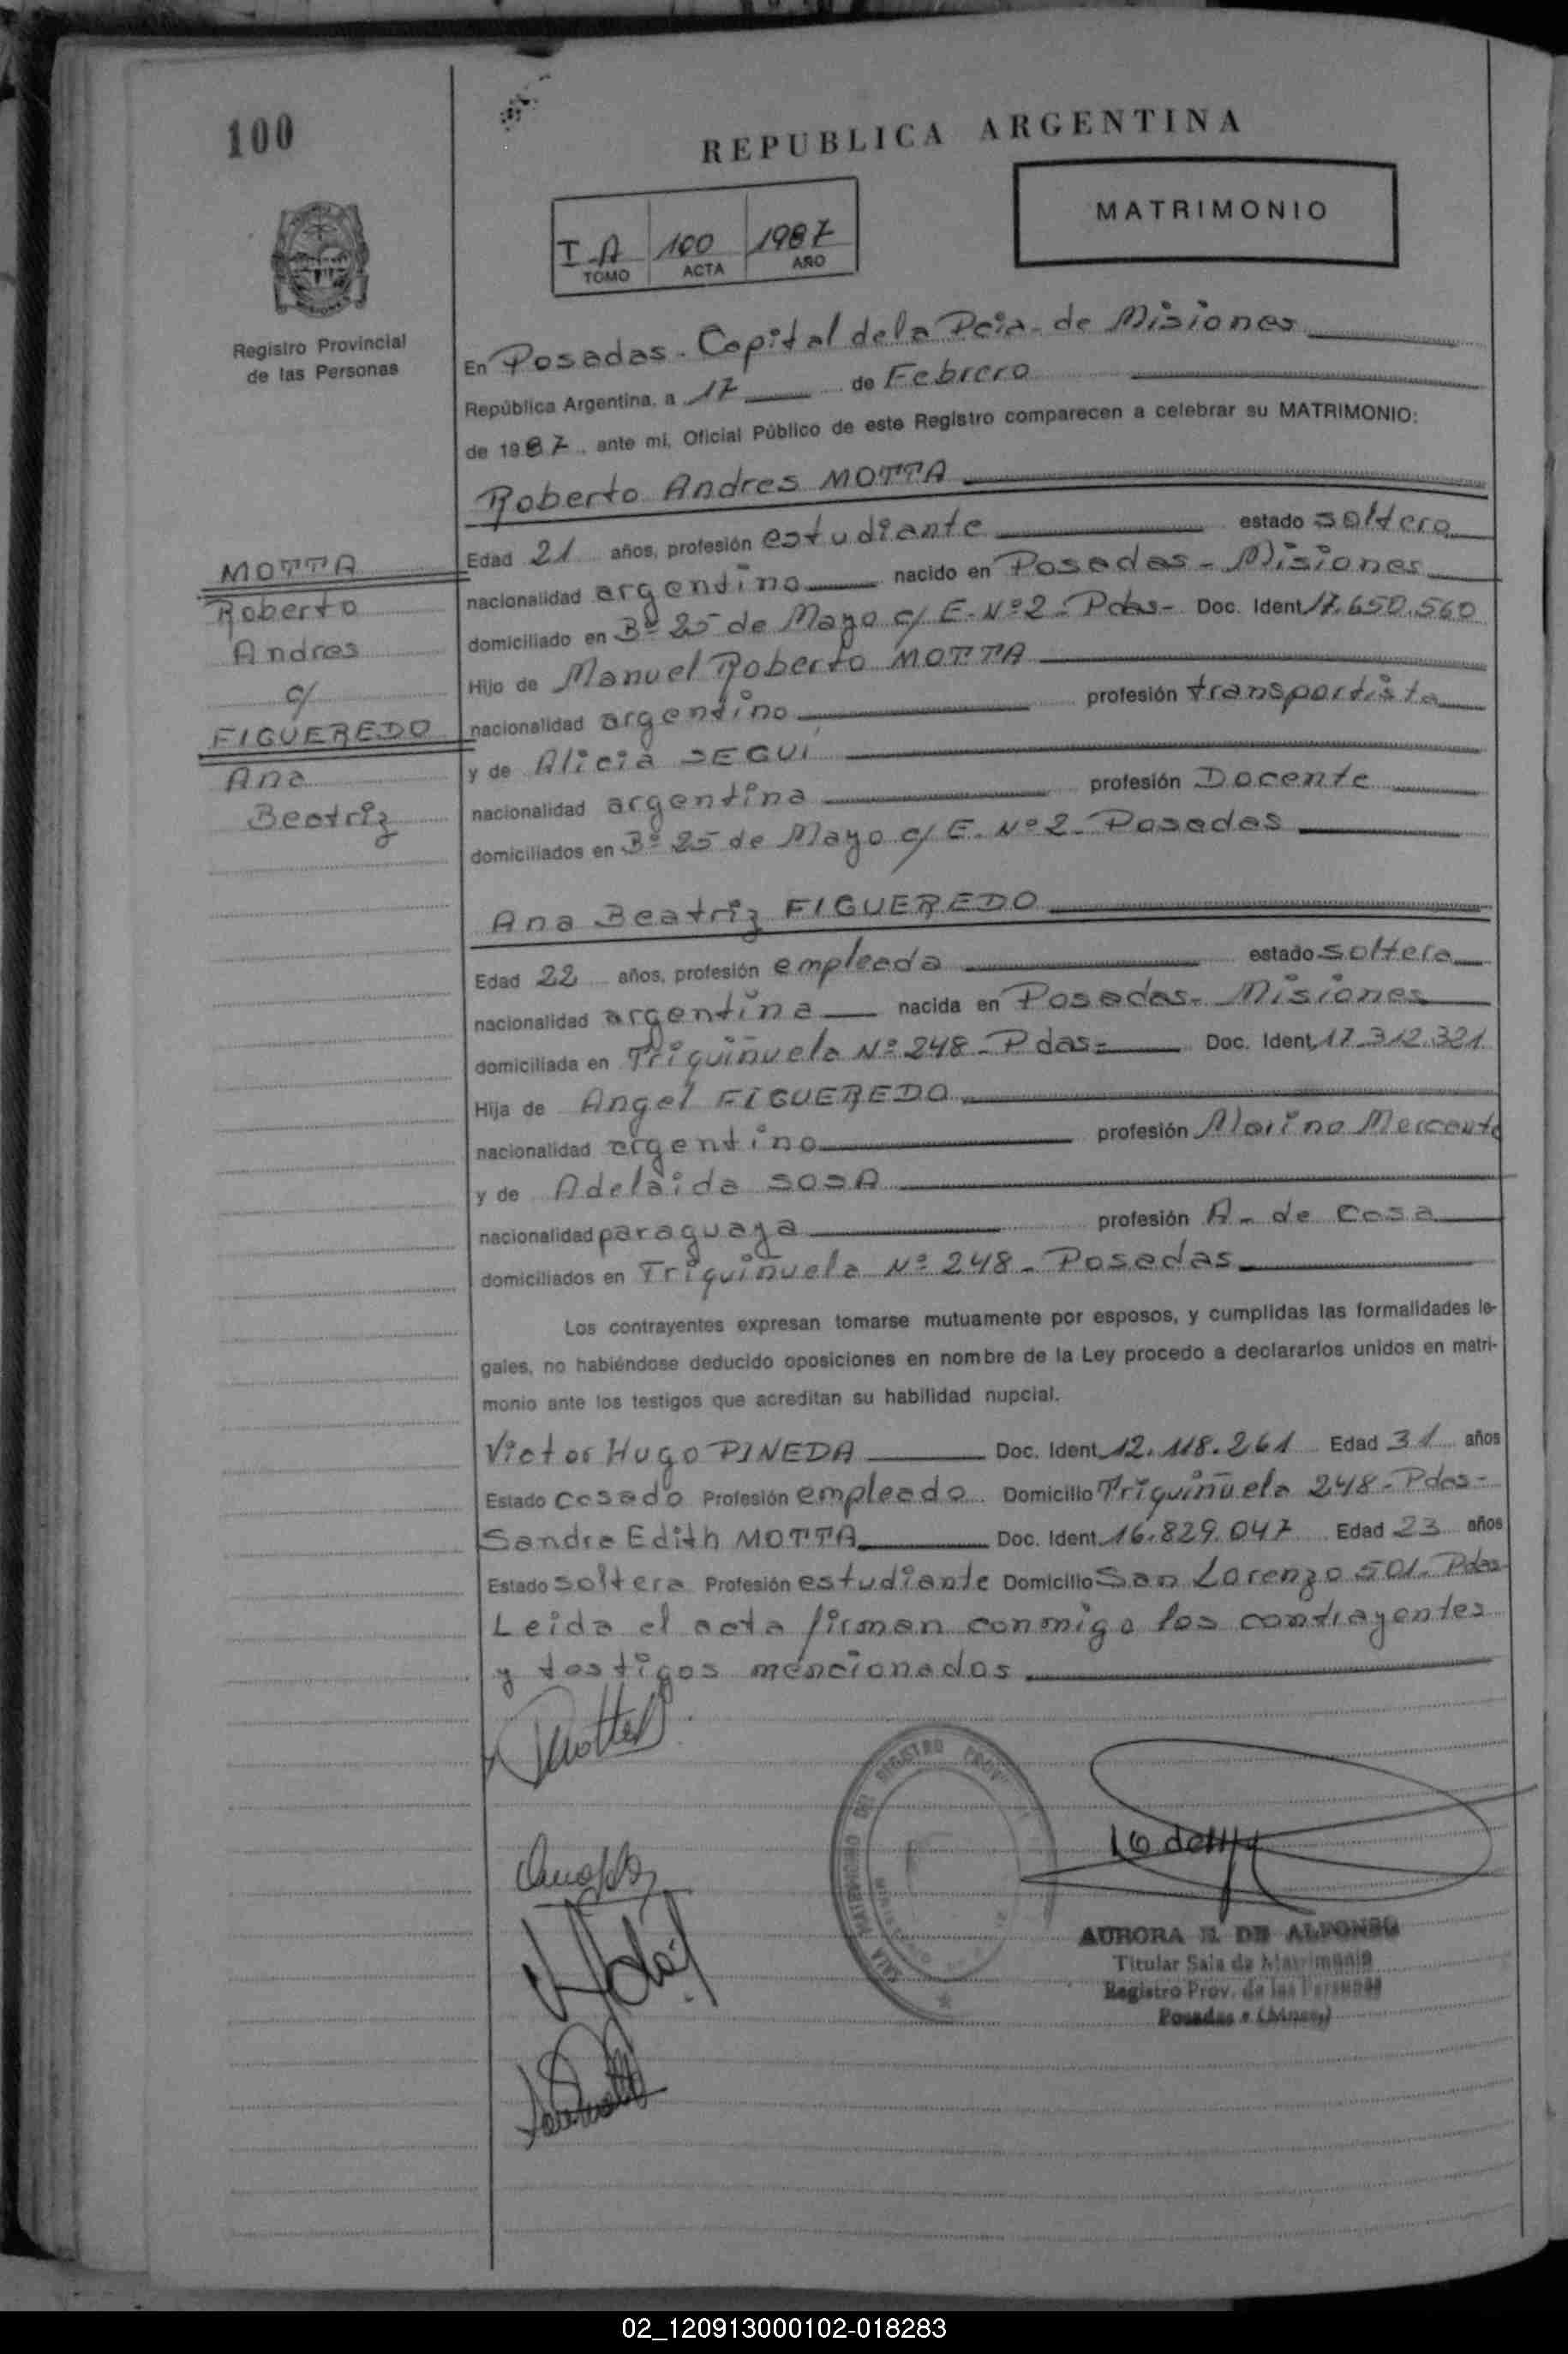 100
REPUBLICA ARGENTINA
MATRIMONIO
I A 100 1987
TOMO ACTA AÑO
Registro Provincial
de las Personas
En Posadas - Capital de la Pcia - de Misiones
República Argentina, a 17 de Febrero
de 1987, ante mi, Oficial Público de este Registro comparecen a celebrar su MATRIMONIO:
Roberto Andres MOTTA
Edad 21 años, profesión estudiante estado soltero
nacionalidad argentino nacido en Posadas - Misiones
domiciliado en Bº 25 de Mayo c/ E. Nº 2 - Pdas - Doc. Ident. 17.650.560
Hijo de Manuel Roberto MOTTA
nacionalidad argentino profesión transportista
y de Alicia SEGUÍ
nacionalidad argentina profesión Docente
domiciliados en Bº 25 de Mayo c/ E. Nº 2 - Posadas
MOTTA
Roberto
Andres
c/
FIGUEREDO
Ana
Beatriz
Ana Beatriz FIGUEREDO
Edad 22 años, profesión empleada estado soltera
nacionalidad argentina nacida en Posadas - Misiones
domiciliada en Triquiñuela Nº 248 - Pdas - Doc. Ident. 17.312.321
Hija de Angel FIGUEREDO
nacionalidad argentino profesión Marino Mercante
y de Adelaida SOSA
nacionalidad paraguaya profesión A - de casa
domiciliados en Triquiñuela Nº 248 - Posadas
Los contrayentes expresan tomarse mutuamente por esposos, y cumplidas las formalidades le-
gales, no habiéndose deducido oposiciones en nombre de la Ley procedo a declararlos unidos en matri-
monio ante los testigos que acreditan su habilidad nupcial.
Victor Hugo PINEDA Doc. Ident. 12.118.261 Edad 31 años
Estado casado Profesión empleado Domicilio Triquiñuela 248 - Pdas -
Sandra Edith MOTTA Doc. Ident. 16.829.047 Edad 23 años
Estado soltera Profesión estudiante Domicilio San Lorenzo 501 - Pdas
Leida el acta firman conmigo los contrayentes
y testigos mencionados
AURORA DE ALFONSO
Titular Sala de Matrimonio
Registro Prov. de las Personas
Posadas
02_120913000102-018283